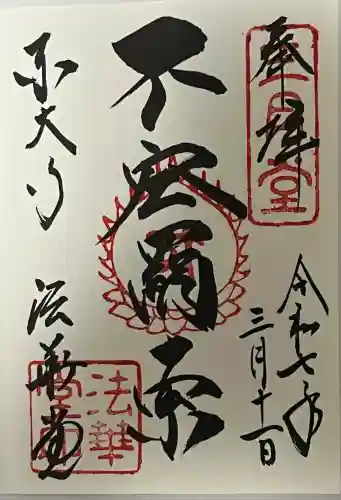 奉拝
令和七年
三月十一日
不空羂索
東大寺
法華堂
三月堂
法華堂印